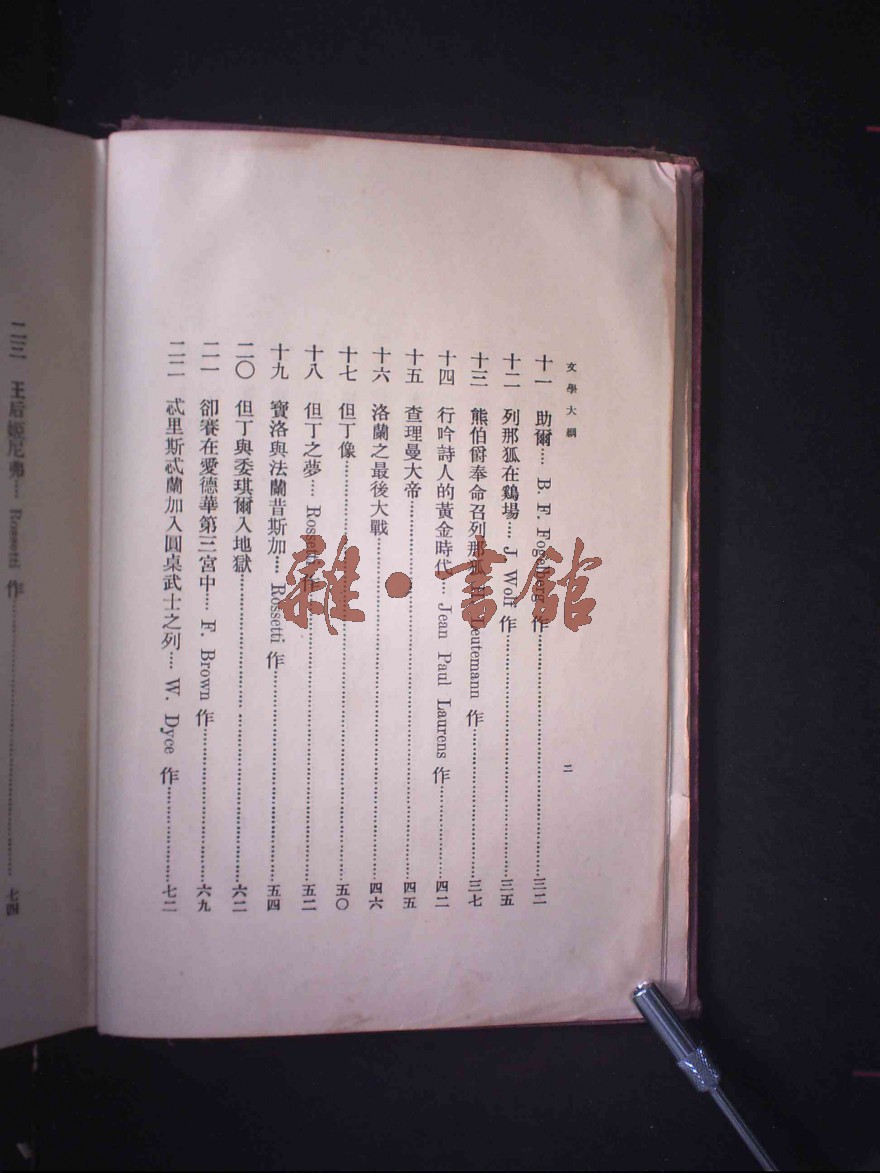 文學大綱
二
十一 助爾…… B. F. Fogelberg 作……三二
十二 列那狐在鷄場…… J. Wolf 作……三五
十三 熊伯爵奉命召列那狐 Leutemann 作……三七
十四 行吟詩人的黃金時代…… Jean Paul Laurens 作……四二
十五 查理曼大帝……四五
十六 洛蘭之最後大戰……四六
十七 但丁像……五〇
十八 但丁之夢…… Rossetti 作……五二
十九 寶洛與法蘭昔斯加…… Rossetti 作……五四
二〇 但丁與委琪爾入地獄……六二
二一 卻賽在愛德華第三宮中…… F. Brown 作……六九
二二 忒里斯忒蘭加入圓桌武士之列…… W. Dyce 作……七二
二三 王后姬尼弗…… Rossetti 作……七四
雜·書館